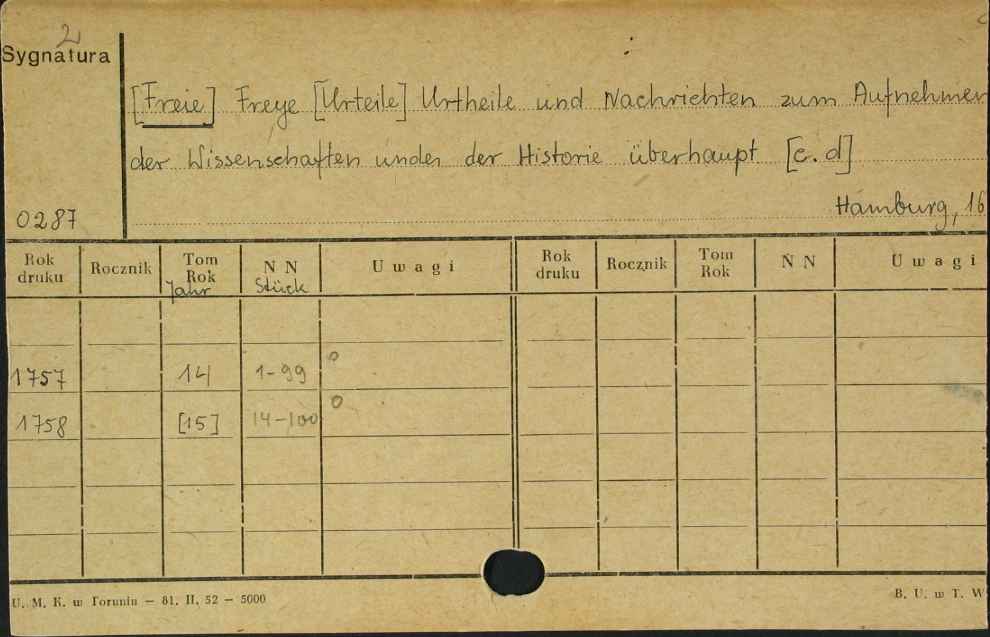 2
Sygnatura
[Freie] Freye [Urteile] Urtheile und Nachrichten zum Aufnehmen
der Wissenschaften under der Historie überhaupt [c.d]
0287
Hamburg, 16
Rok druku Rocznik Tom Rok Jahr N N Stück Uwagi Rok druku Rocznik Tom Rok N N Uwagi
1757 14 1-99 o
1758 [15] 14-100 o
U. M. K. w Toruniu — 81. II. 52 — 5000
B. U. w T. W